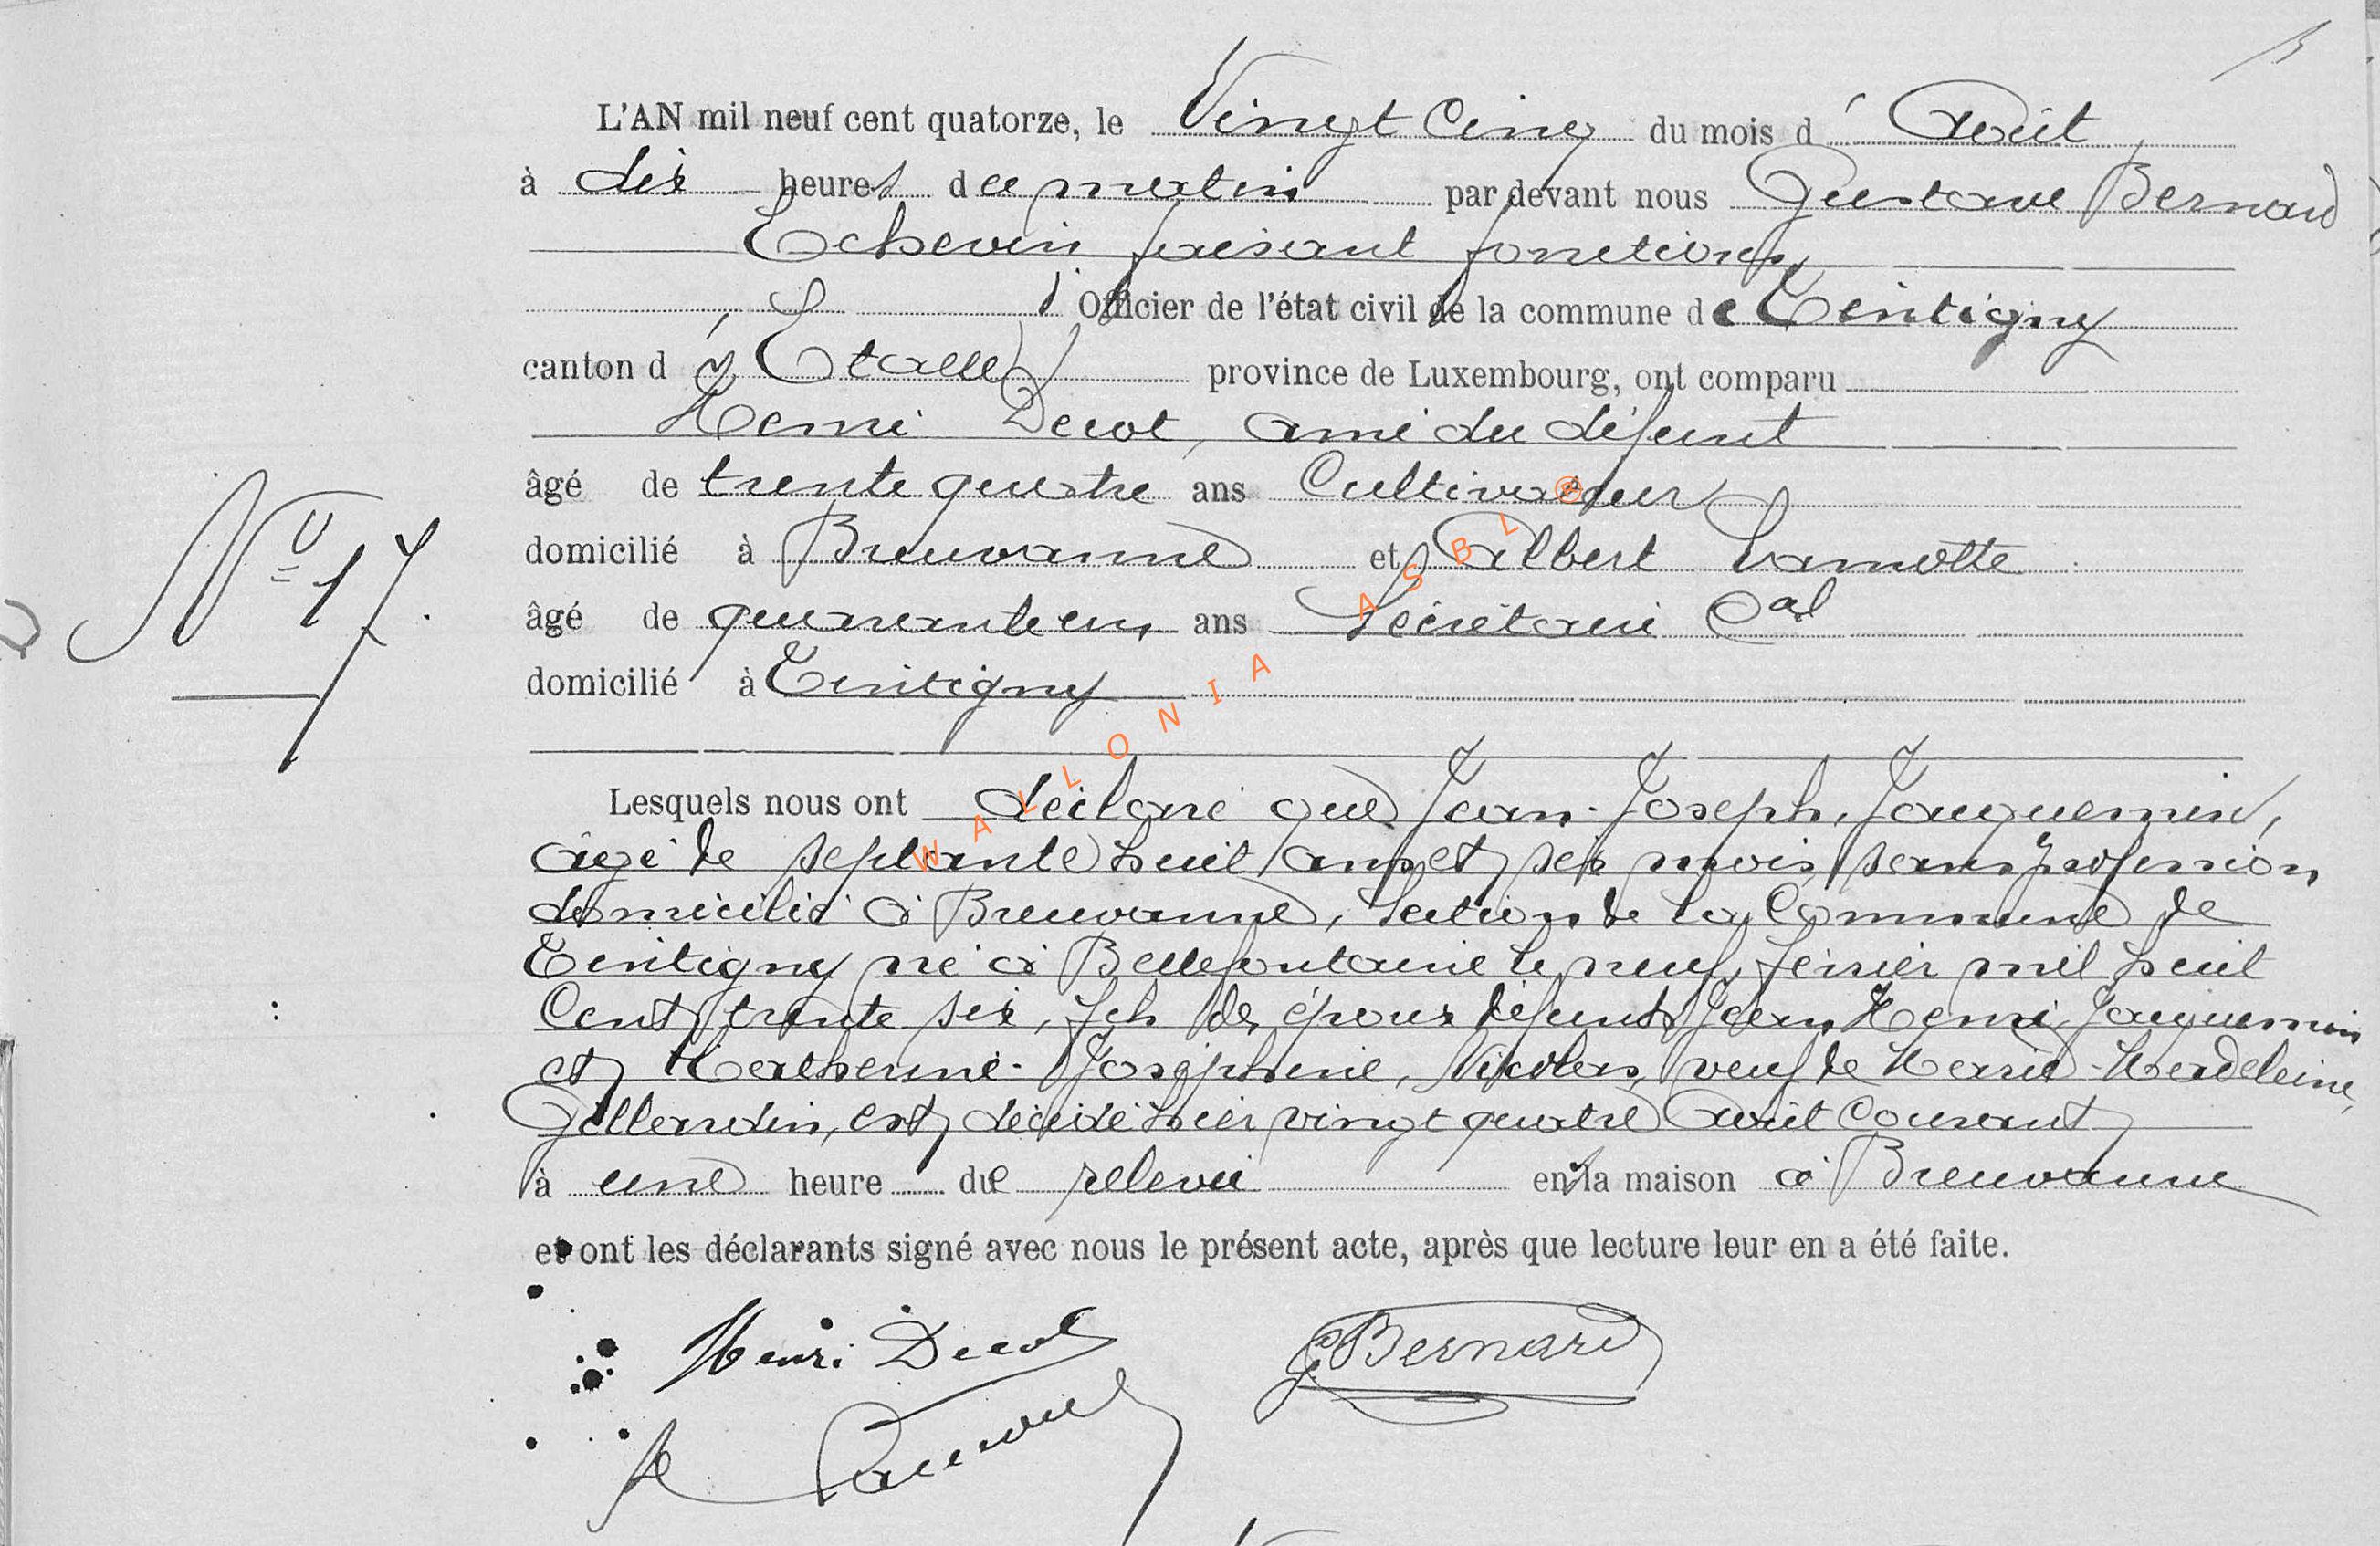 L'AN mil neuf cent quatorze, le Vingt Cinq du mois d' Août
à dix heures du matin par devant nous Gustave Bernard
Echevin faisant fonctions
d' Officier de l'état civil de la commune de Tintigny
canton d' Etalle province de Luxembourg, ont comparu
Henri Decot, ami du défunt
âgé de trente quatre ans Cultivateur
domicilié à Breuvanne et Albert Lamotte
âgé de quarante un ans Secrétaire Cal
domicilié à Tintigny
Nº 17.
Lesquels nous ont déclaré que Jean-Joseph, Jacquemin,
âgé de septante huit ans et six mois, sans profession
domicilié à Breuvanne, Section de la Commune de
Tintigny né à Bellefontaine le neuf février mil huit
Cent trente six, fils des époux défunts Jean Henri Jacquemin
et Catherine-Joséphine, Nicolas, veuf de Marie-Madeleine,
Gillardin, est décédé hier vingt quatre Août Courant
à une heure de relevée en la maison à Breuvanne
et ont les déclarants signé avec nous le présent acte, après que lecture leur en a été faite.
Henri Decot
G Bernard
WALLONIA ASBL ®